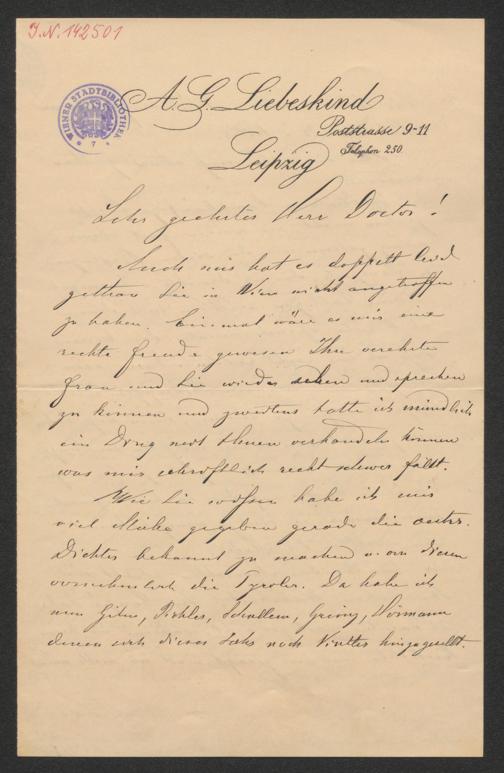 I.N. 142501
WIENER STADTBIBLIOTHEK
7
A. G. Liebeskind
Poststrasse 9-11
Telephon 250
Leipzig
Sehr geehrter Herr Doctor!
Auch mir hat es doppelt leid
gethan Sie in Wien nicht angetroffen
zu haben. Einmal wäre es mir eine
rechte Freude gewesen Ihre verehrte
Frau und Sie wieder sehen und sprechen
zu können und zweitens hätte ich mündlich
ein Ding mit Ihnen verhandeln können
was mir schriftlich recht schwer fällt.
Wie Sie wissen habe ich mir
viel Mühe gegeben gerade die oestr.
Dichter bekannt zu machen u. von diesen
vornehmlich die Tyroler. Da habe ich
nun Gilm, Pichler, Schullern, Greinz, Hörmann
denen sich dieses Jahr noch Vintler hinzugesellt.